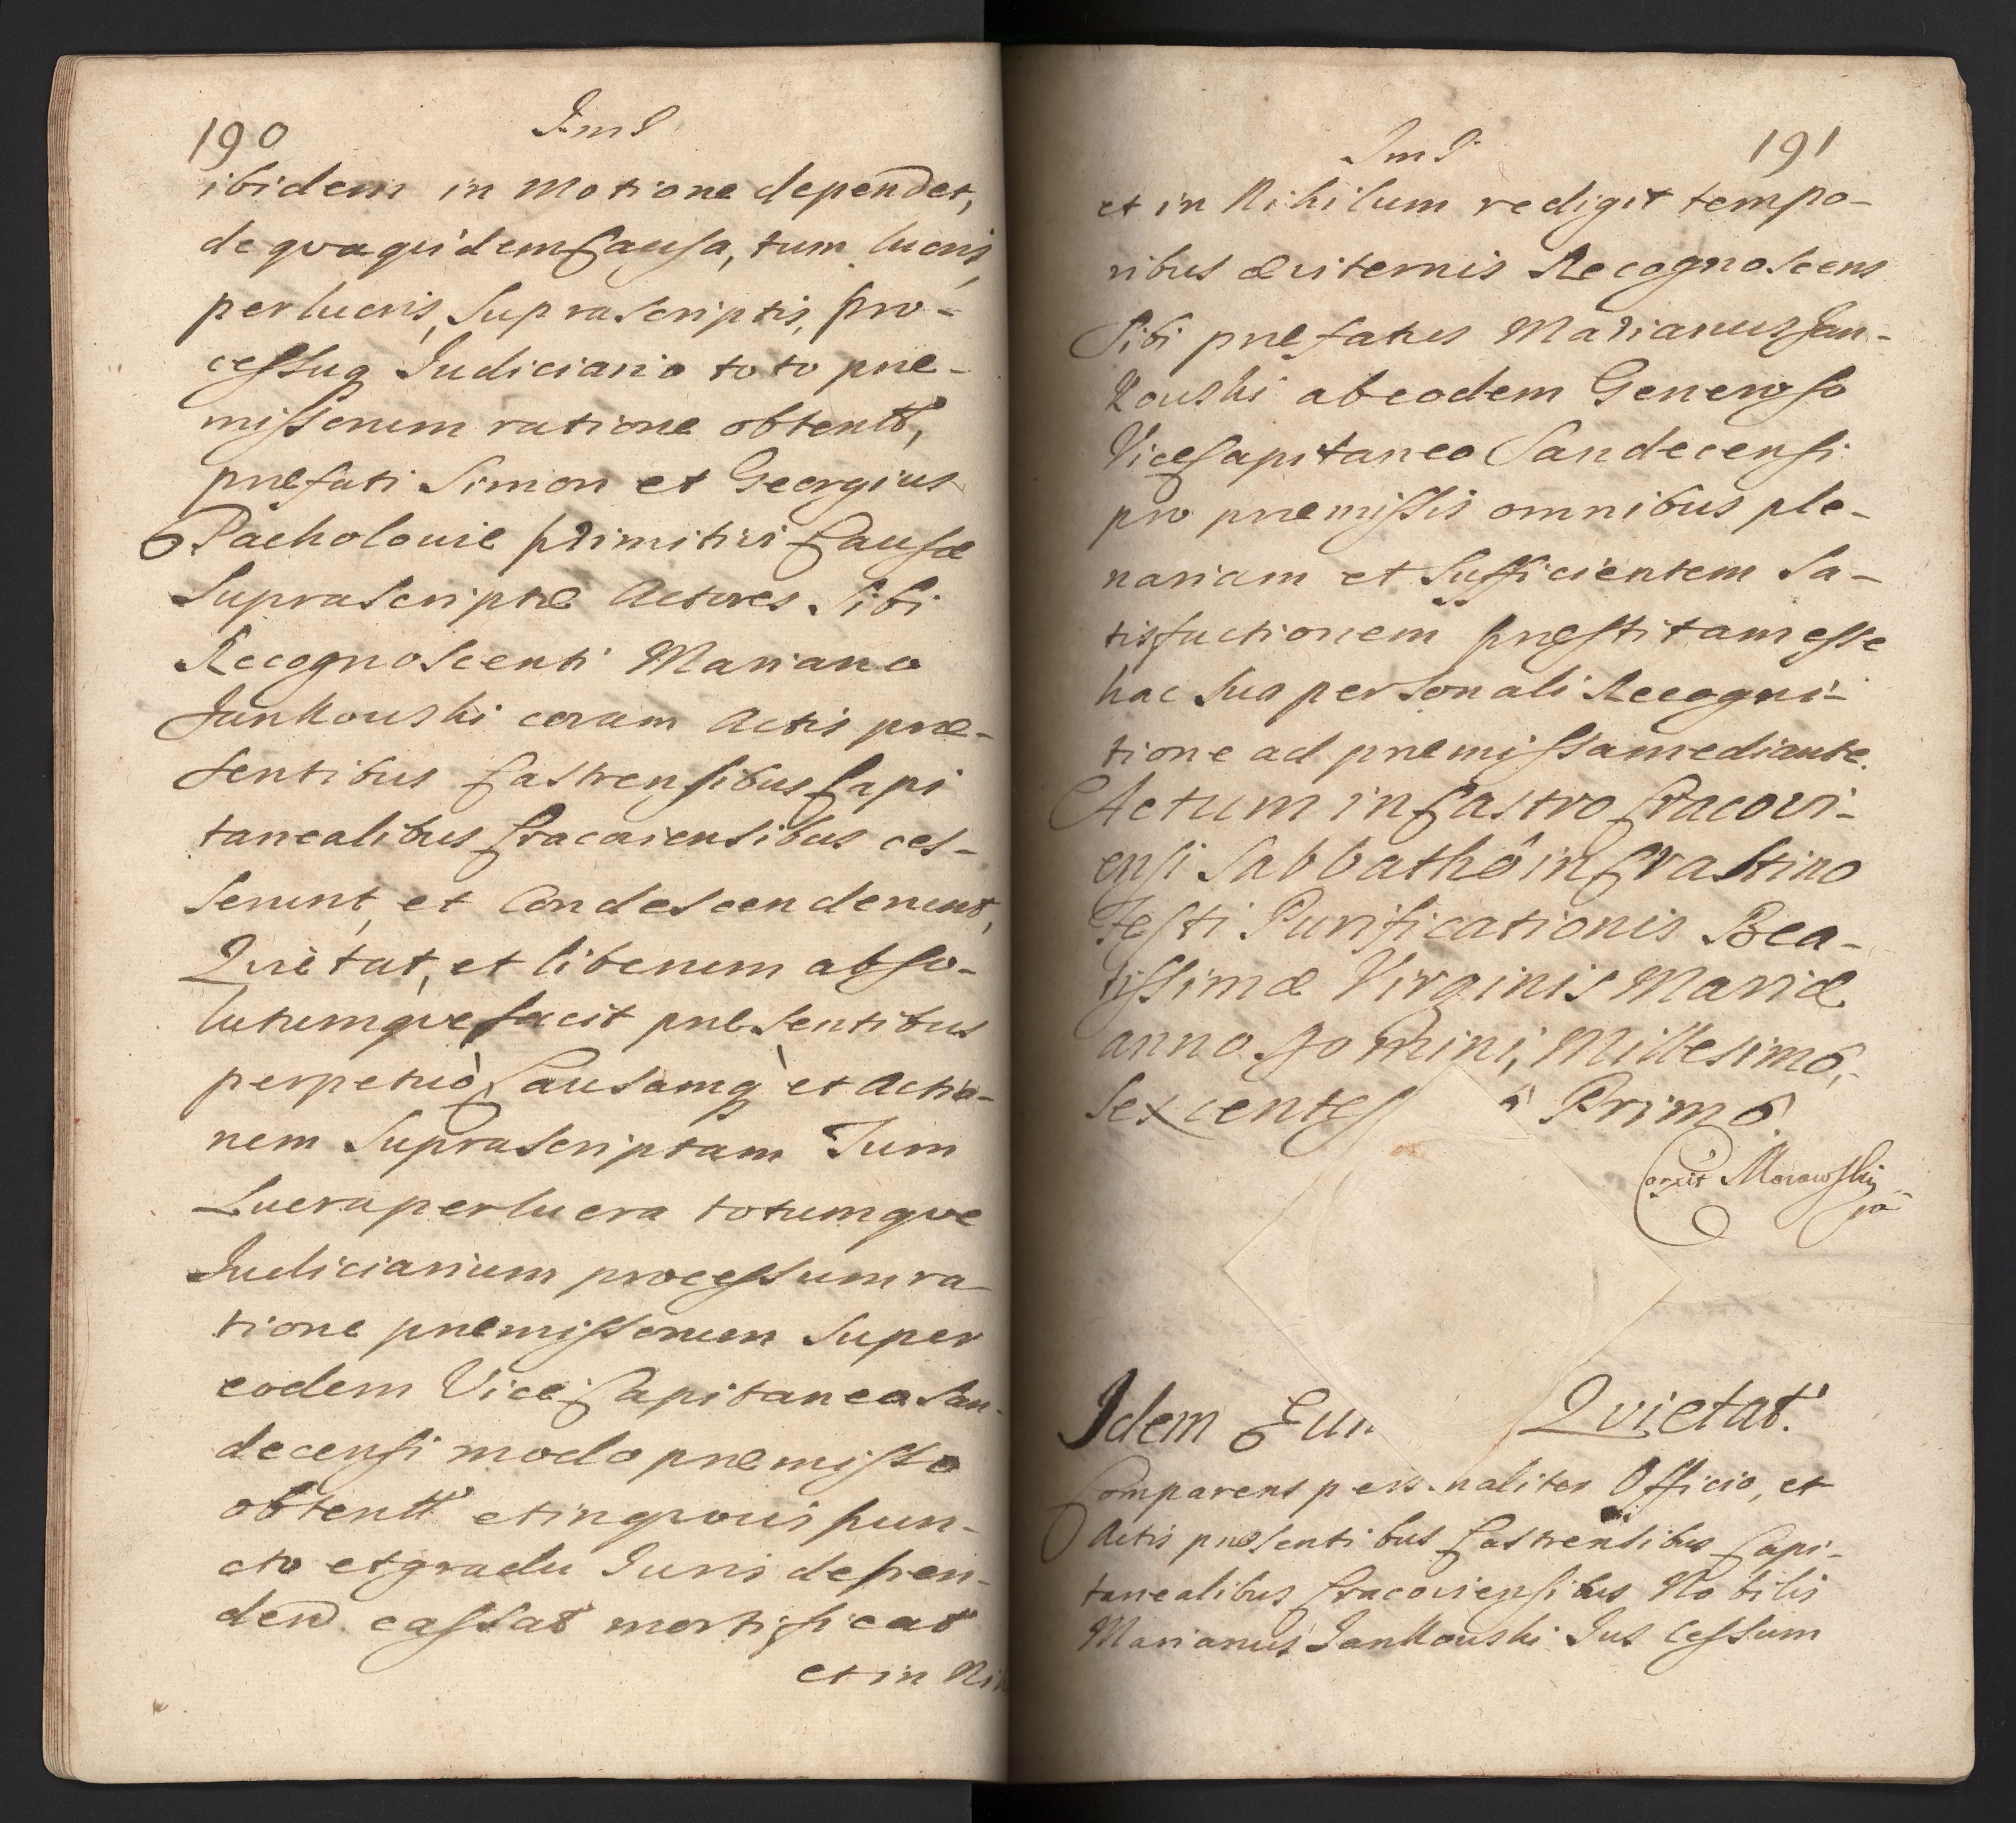 190
ImP
ibidem in Motione dependet,
de qva qvidem Causa, tum lucris,
perlucris, Suprascriptis, pro-
cessuq Judiciario toto præ-
missorum ratione obtentt,
præfati Simon et Georgius
Pacholowie primitivi Causæ
Suprascriptæ Actores Sibi
Recognoscenti Mariano
Jankowski coram Actis præ-
sentibus Castrensibus Capi
tanealibus Cracoviensibus ces-
serunt, et Condescenderunt,
Qvietat, et liberum abso-
lutumqve facit præsentibus
perpetuò Causamq et Actio-
nem Suprascriptam Tum
Lucra perlucra totumqve
Judiciarium processum ra-
tione præmissorum Super
eodem Vice Capitaneo San-
decensi modo præmisso
obtentt et in qvovis pun-
cto et gradu Juris depen-
dend. cassat mortificat
et in Ni
ImP
191
et in Nihilum redigit tempo-
ribus æviternis Recognoscens
Sibi præfatus Marianus Jan-
kowski ab eodem Generoso
Vice Capitaneo Sandecensi
pro præmissis omnibus ple-
nariam et Sufficientem Sa-
tisfactionem præstitam esse
hac Sua personali Recogni-
tione ad præmissa mediante.
Actum in Castro Cracovi-
ensi Sabbathô in Crastino
Festi Purificationis Bea-
tissimæ Virginis Mariæ
anno Domini, Millesimô,
Sexcentes Primô.
Corexit Morawski
Idem Eun Qvietat.
Comparens personaliter Officio, et
Actis præsentibus Castrensibus Capi-
tanealibus Cracoviensibus Nobilis
Marianus Jankowski Jus Cessum